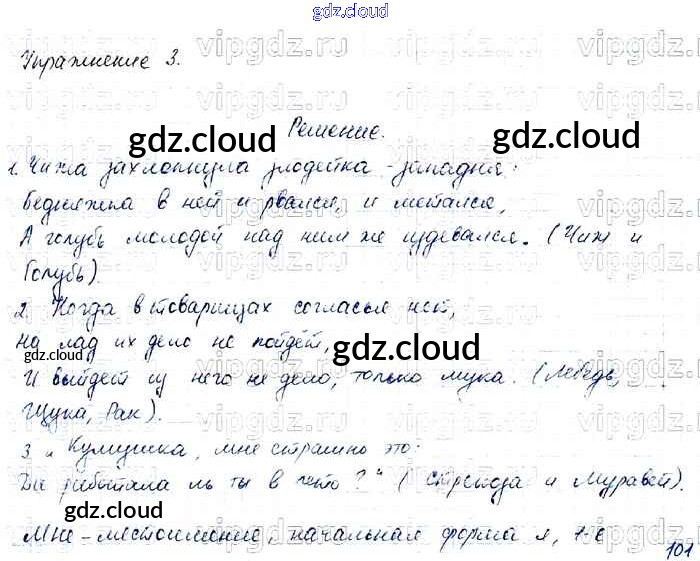 gdz.cloud
Упражнение 3.
Решение.
1. Чижа захлопнула злодейка-западня:
Бедняжка в ней и рвался, и метался,
А голубь молодой над ним же издевался. (Чиж и
Голубь).
2. Когда в товарищах согласья нет,
На лад их дело не пойдёт,
И выйдет из него не дело, только мука. (Лебедь,
Щука, Рак).
3 „Кумушка, мне странно это:
Да работала ль ты в лето?" (Стрекоза и Муравей).
Мне - местоимение, начальная форма я, 1-е
101